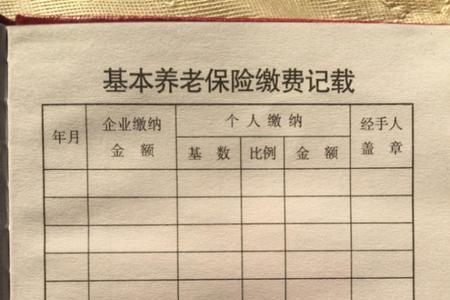 基本养老保险缴费记载
年月 企业缴纳金额 个人缴纳 经手人盖章
基数 比例 金额